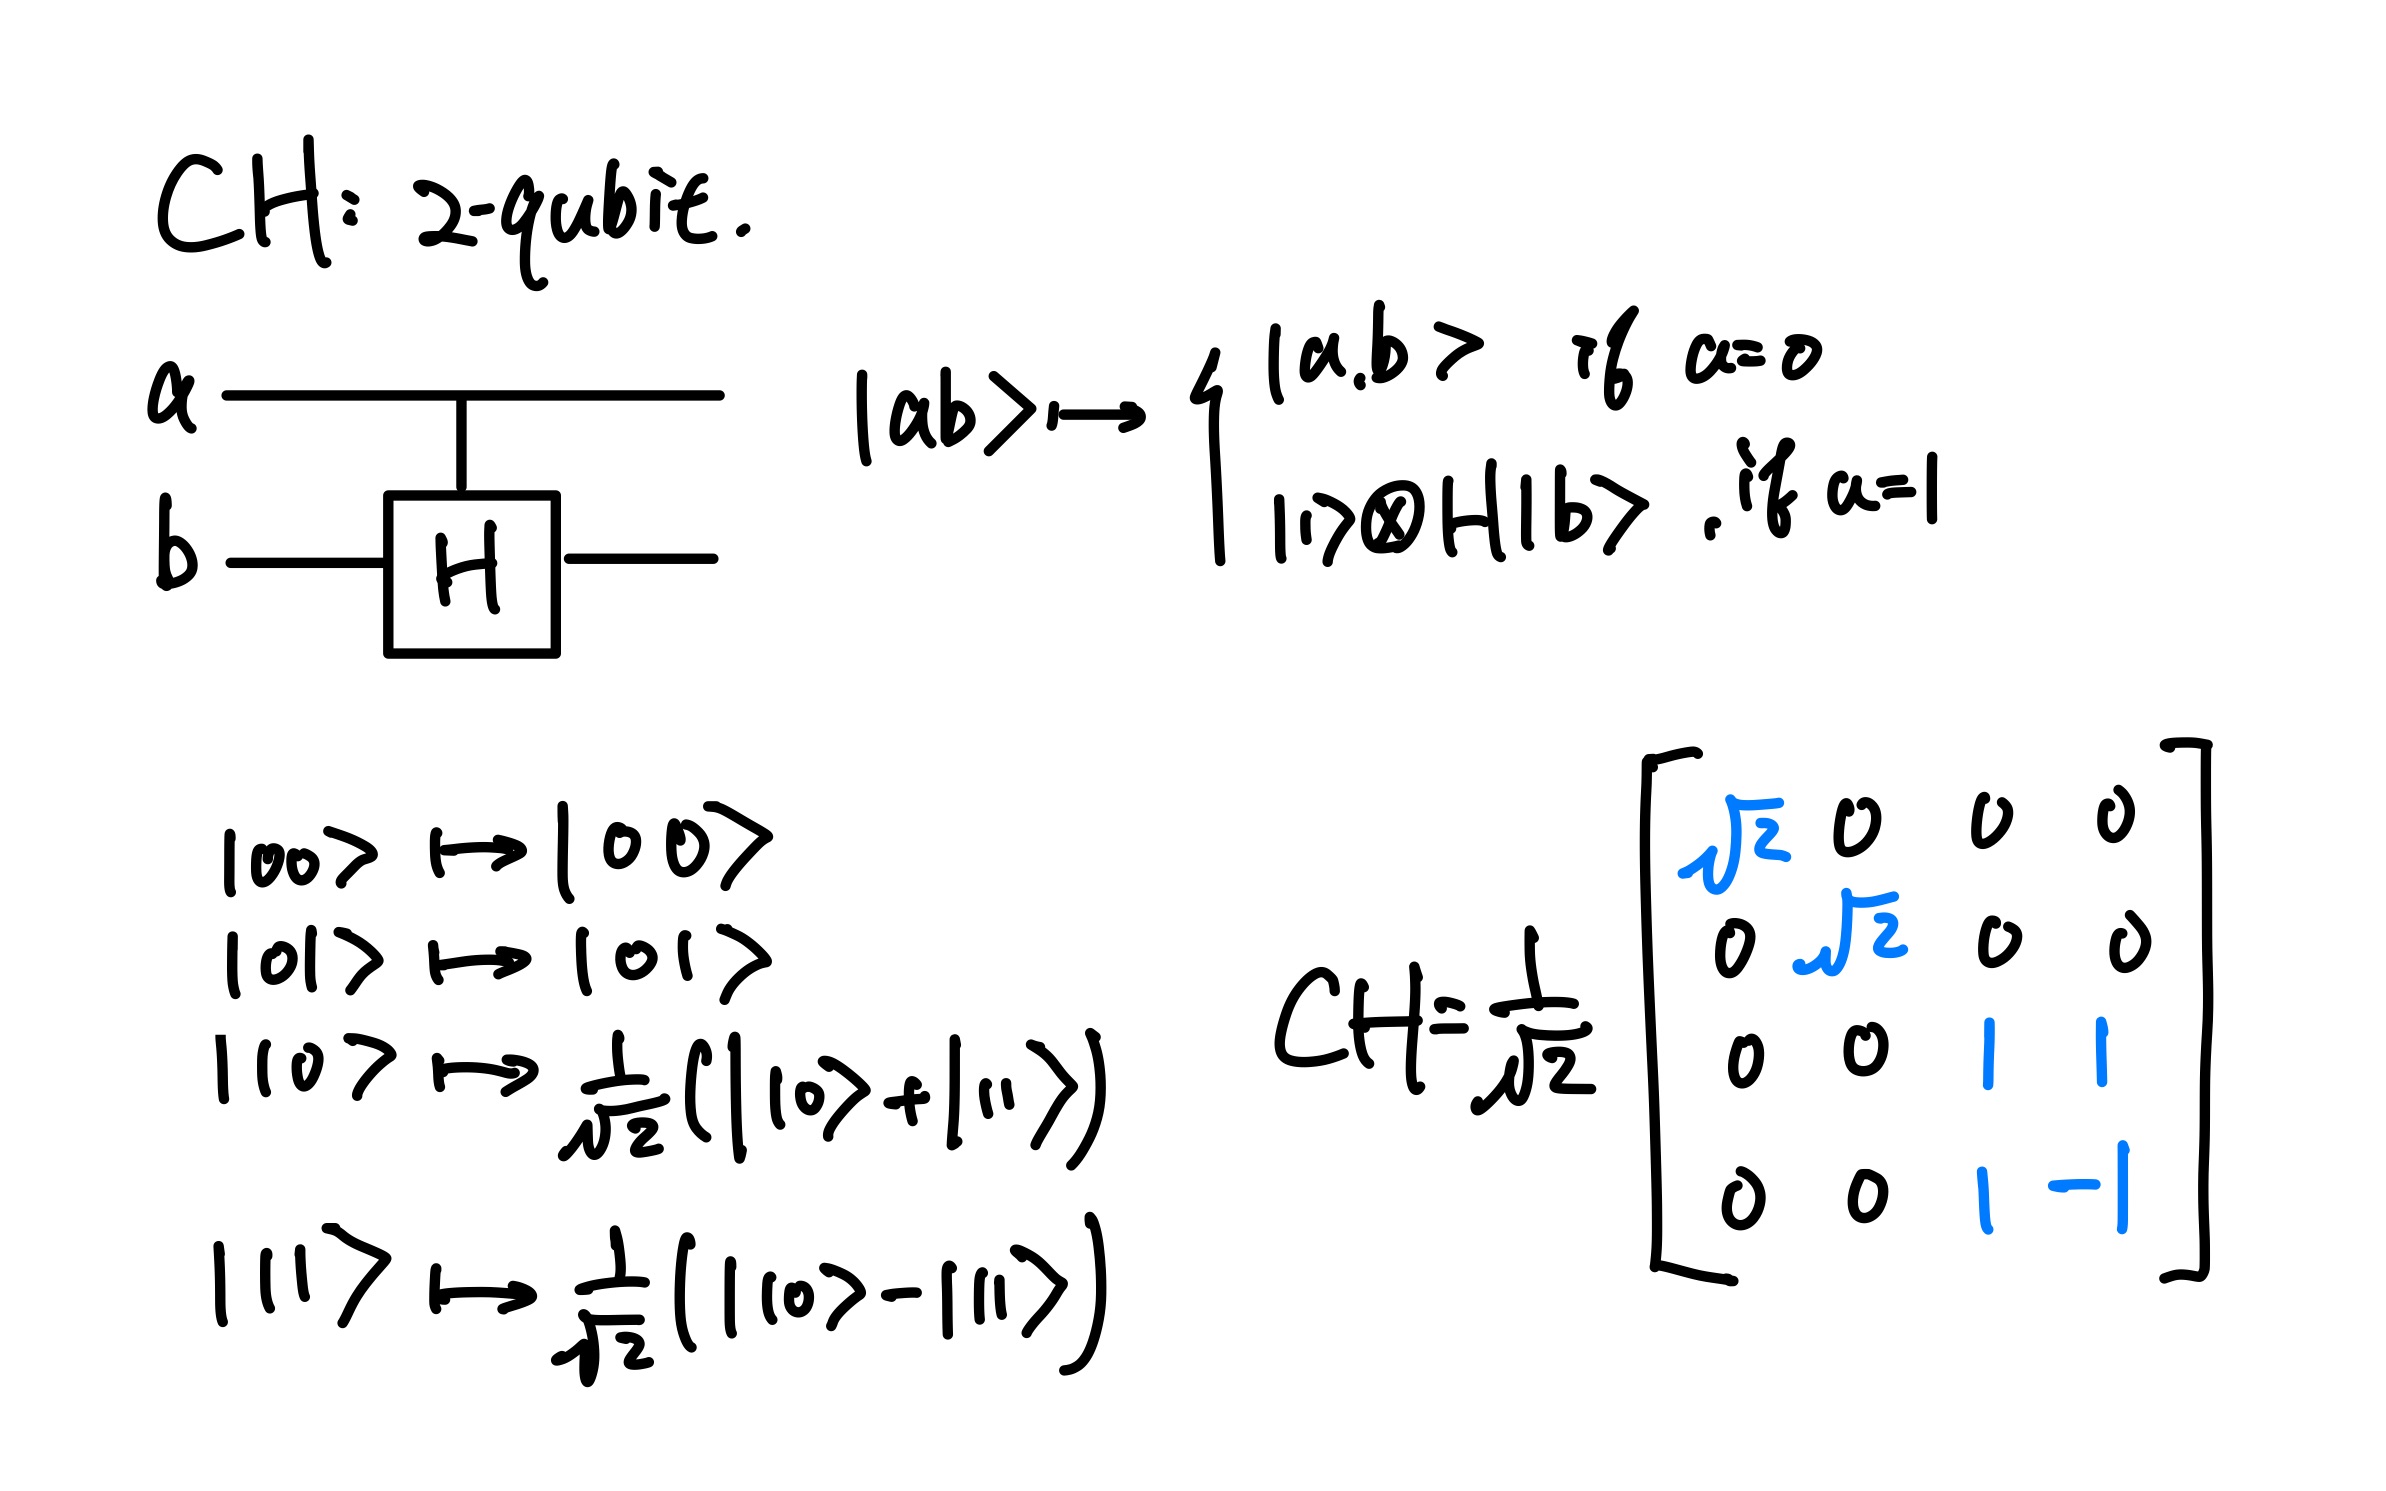 CH: 2-qubit.
a
b
H
|ab> ↦ { |a,b> if a=0
|1>⊗H|b> , if a=1
|00> ↦ |00>
|01> ↦ |01>
|10> ↦ 1/√2 (|10>+|11>)
|11> ↦ 1/√2 (|10>-|11>)
CH = 1/√2 [
√2 0 0 0
0 √2 0 0
0 0 1 1
0 0 1 -1
]